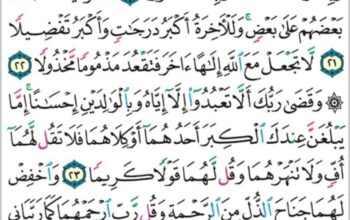 بَعْضَهُمْ عَلَىٰ بَعْضٍ ۚ وَلَلْـَٔاخِرَةُ أَكْبَرُ دَرَجَـٰتٍ وَأَكْبَرُ تَفْضِيلًا
٢١ لَّا تَجْعَلْ مَعَ ٱللَّهِ إِلَـٰهًا ءَاخَرَ فَتَقْعُدَ مَذْمُومًا مَّخْذُولًا ٢٢
۞ وَقَضَىٰ رَبُّكَ أَلَّا تَعْبُدُوٓا۟ إِلَّآ إِيَّاهُ وَبِٱلْوَٰلِدَيْنِ إِحْسَـٰنًا ۚ إِمَّا
يَبْلُغَنَّ عِندَكَ ٱلْكِبَرَ أَحَدُهُمَآ أَوْ كِلَاهُمَا فَلَا تَقُل لَّهُمَآ
أُفٍّ وَلَا تَنْهَرْهُمَا وَقُل لَّهُمَا قَوْلًا كَرِيمًا ٢٣ وَٱخْفِضْ
لَهُمَا جَنَاحَ ٱلذُّلِّ مِنَ ٱلرَّحْمَةِ وَقُل رَّبِّ ٱرْحَمْهُمَا كَمَا رَبَّيَانِى